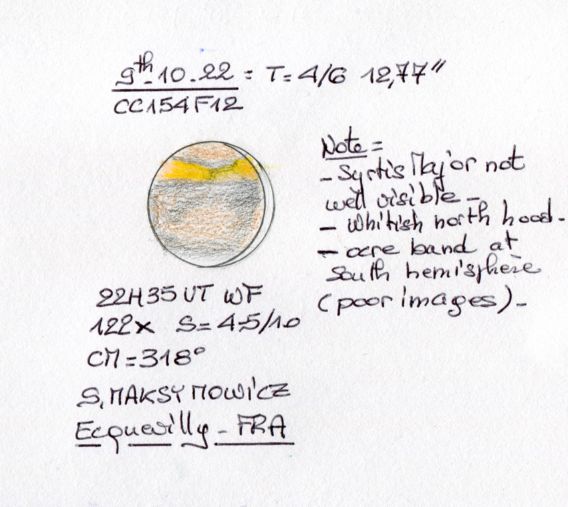 9th.10.22 = T= 4/6 12,77"
CC154F12
Note =
- Syrtis Major not
well visible -
- Whitish north hood -
- ocre band at
south hemisphere
(poor images) -
22H35 UT WF
122x S= 4-5/10
CM = 318°
S. MAKSYMOWICZ
Ecquevilly - FRA